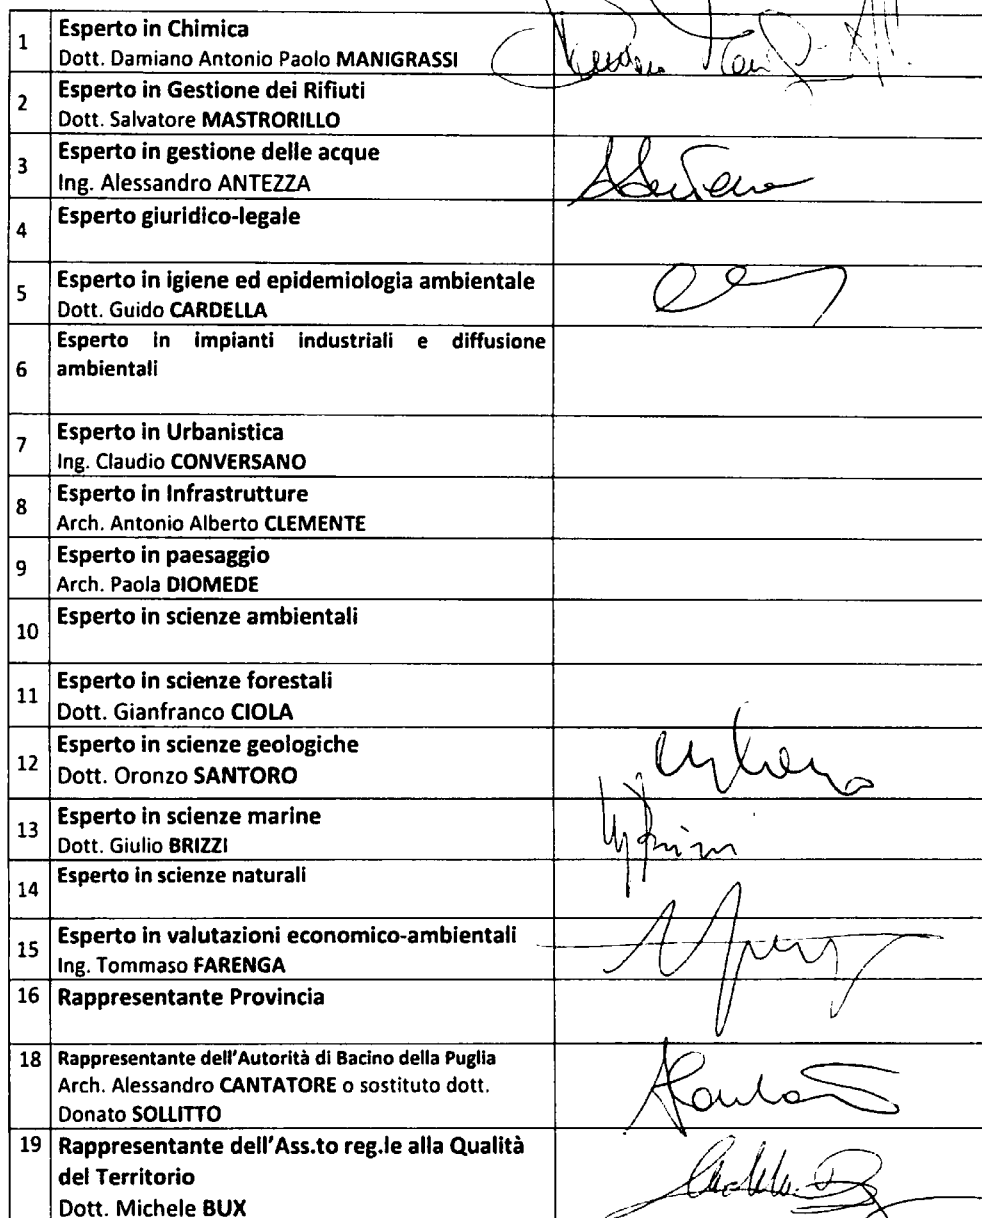 1
Esperto in Chimica
Dott. Damiano Antonio Paolo MANIGRASSI
2
Esperto in Gestione dei Rifiuti
Dott. Salvatore MASTRORILLO
3
Esperto in gestione delle acque
Ing. Alessandro ANTEZZA
4
Esperto giuridico-legale
5
Esperto in igiene ed epidemiologia ambientale
Dott. Guido CARDELLA
6
Esperto in impianti industriali e diffusione
ambientali
7
Esperto in Urbanistica
Ing. Claudio CONVERSANO
8
Esperto in Infrastrutture
Arch. Antonio Alberto CLEMENTE
9
Esperto in paesaggio
Arch. Paola DIOMEDE
10
Esperto in scienze ambientali
11
Esperto in scienze forestali
Dott. Gianfranco CIOLA
12
Esperto in scienze geologiche
Dott. Oronzo SANTORO
13
Esperto in scienze marine
Dott. Giulio BRIZZI
14
Esperto in scienze naturali
15
Esperto in valutazioni economico-ambientali
Ing. Tommaso FARENGA
16
Rappresentante Provincia
18
Rappresentante dell'Autorità di Bacino della Puglia
Arch. Alessandro CANTATORE o sostituto dott.
Donato SOLLITTO
19
Rappresentante dell'Ass.to reg.le alla Qualità
del Territorio
Dott. Michele BUX